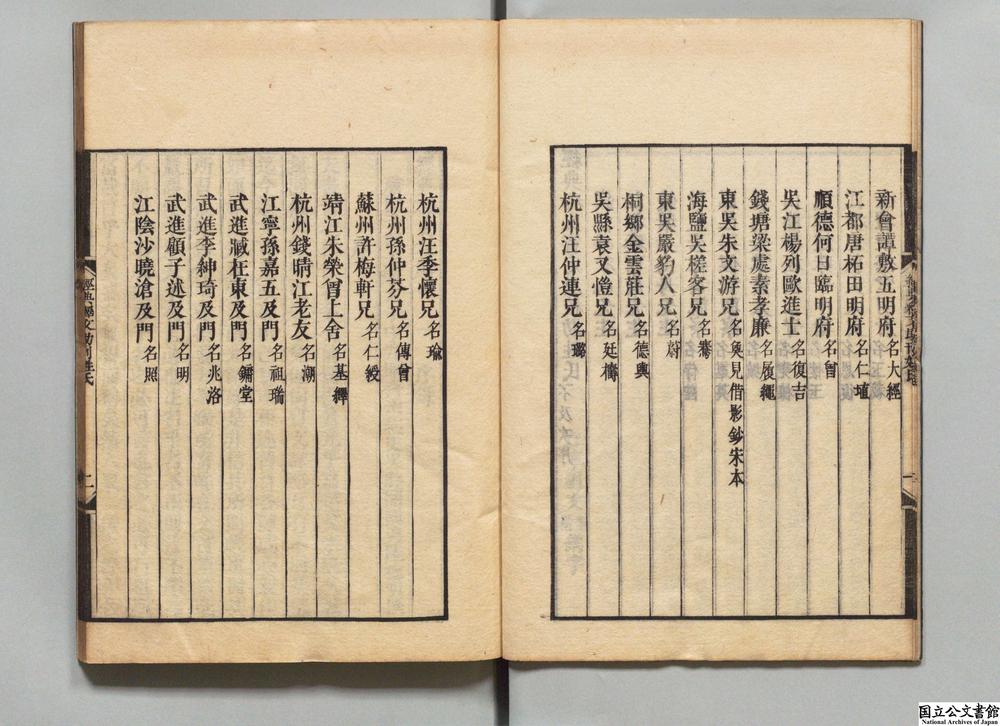 新會譚敷五明府名大經
江都唐柘田明府名仁埴
順德何日臨明府名曾
吳江楊列歐進士名復吉
錢塘梁處素孝廉名履繩
東吳朱文游兄名奐見借影鈔宋本
海鹽吳槎客兄名騫
東吳嚴豹人兄名蔚
桐鄉金雲莊兄名德輿
吳縣袁又愷兄名廷檮
杭州汪仲連兄名璐
杭州汪季懷兄名瑜
杭州孫仲芬兄名傳曾
蘇州許梅軒兄名仁綬
靖江朱榮曾上舍名基繹
杭州錢晴江老友名潮
江寧孫嘉五及門名祖瑞
武進臧在東及門名鏞堂
武進李紳琦及門名兆洛
武進顧子述及門名明
江陰沙曉滄及門名照
二
国立公文書館
National Archives of Japan